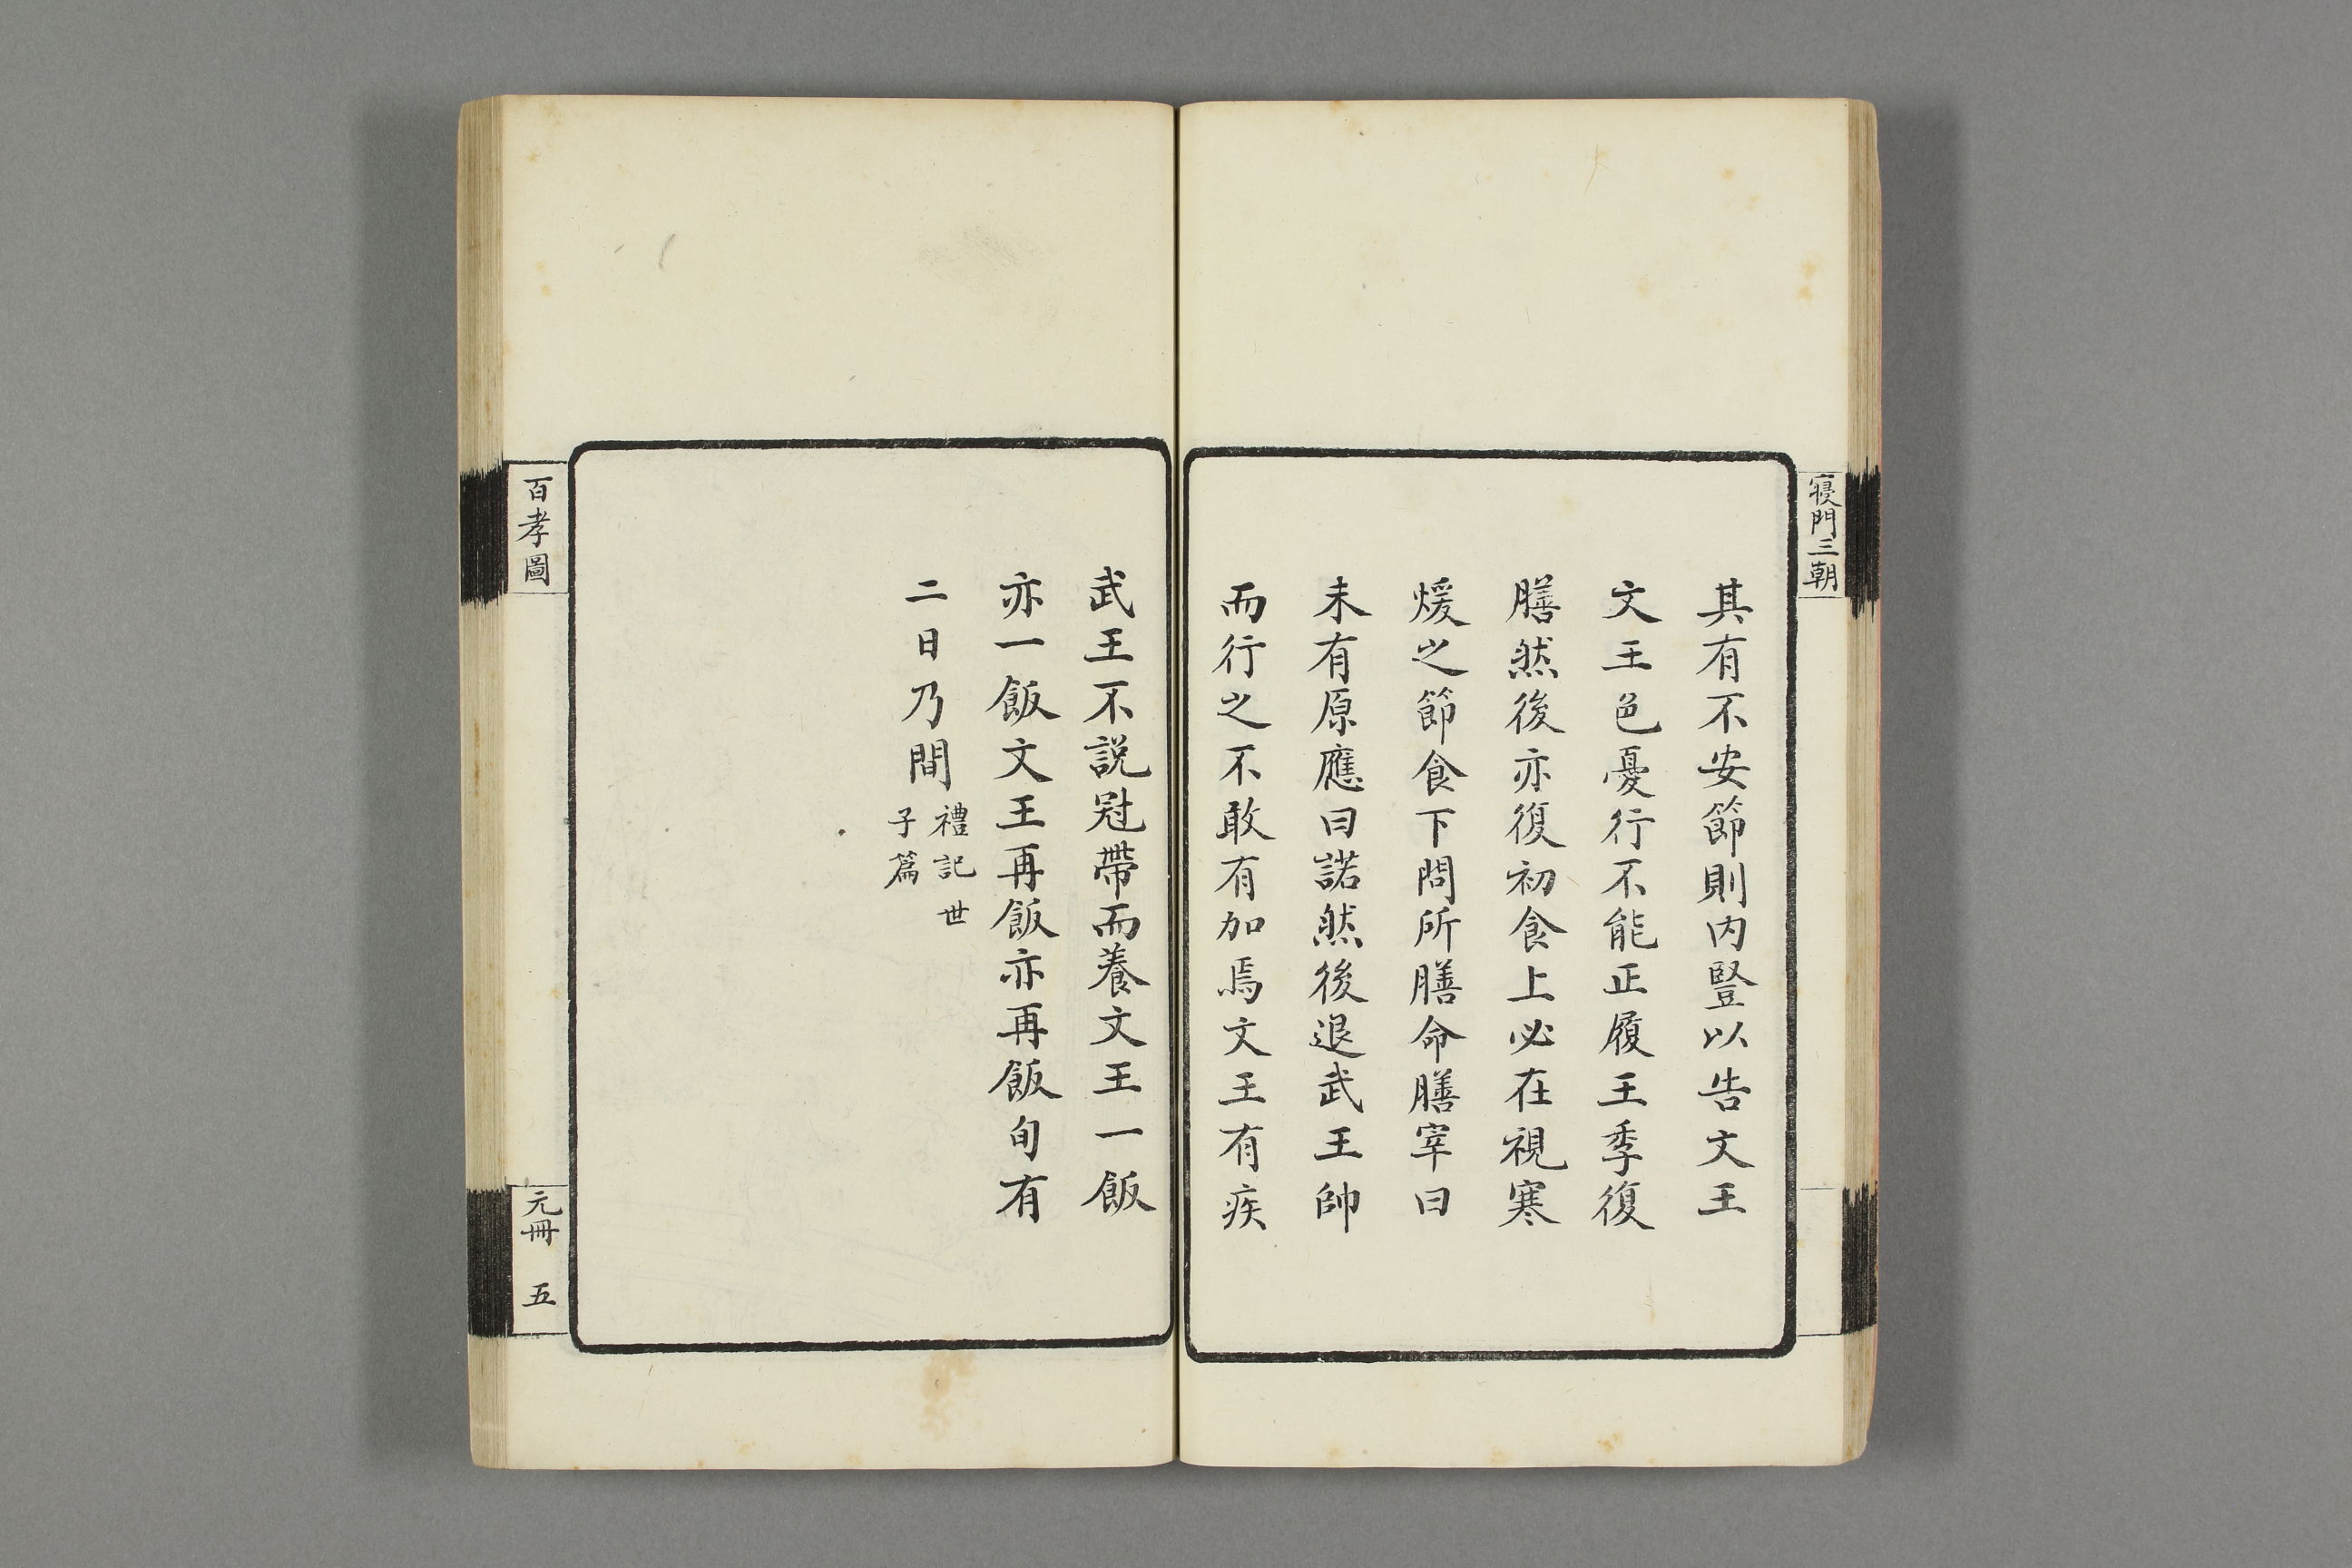 寢門三朝
其有不安節則内豎以告文王
文王色憂行不能正履王季復
膳然後亦復初食上必在視寒
煖之節食下問所膳命膳宰曰
未有原應曰諾然後退武王帥
而行之不敢有加焉文王有疾
武王不説冠帶而養文王一飯
亦一飯文王再飯亦再飯旬有
二日乃間
禮記世
子篇
百孝圖
元冊 五